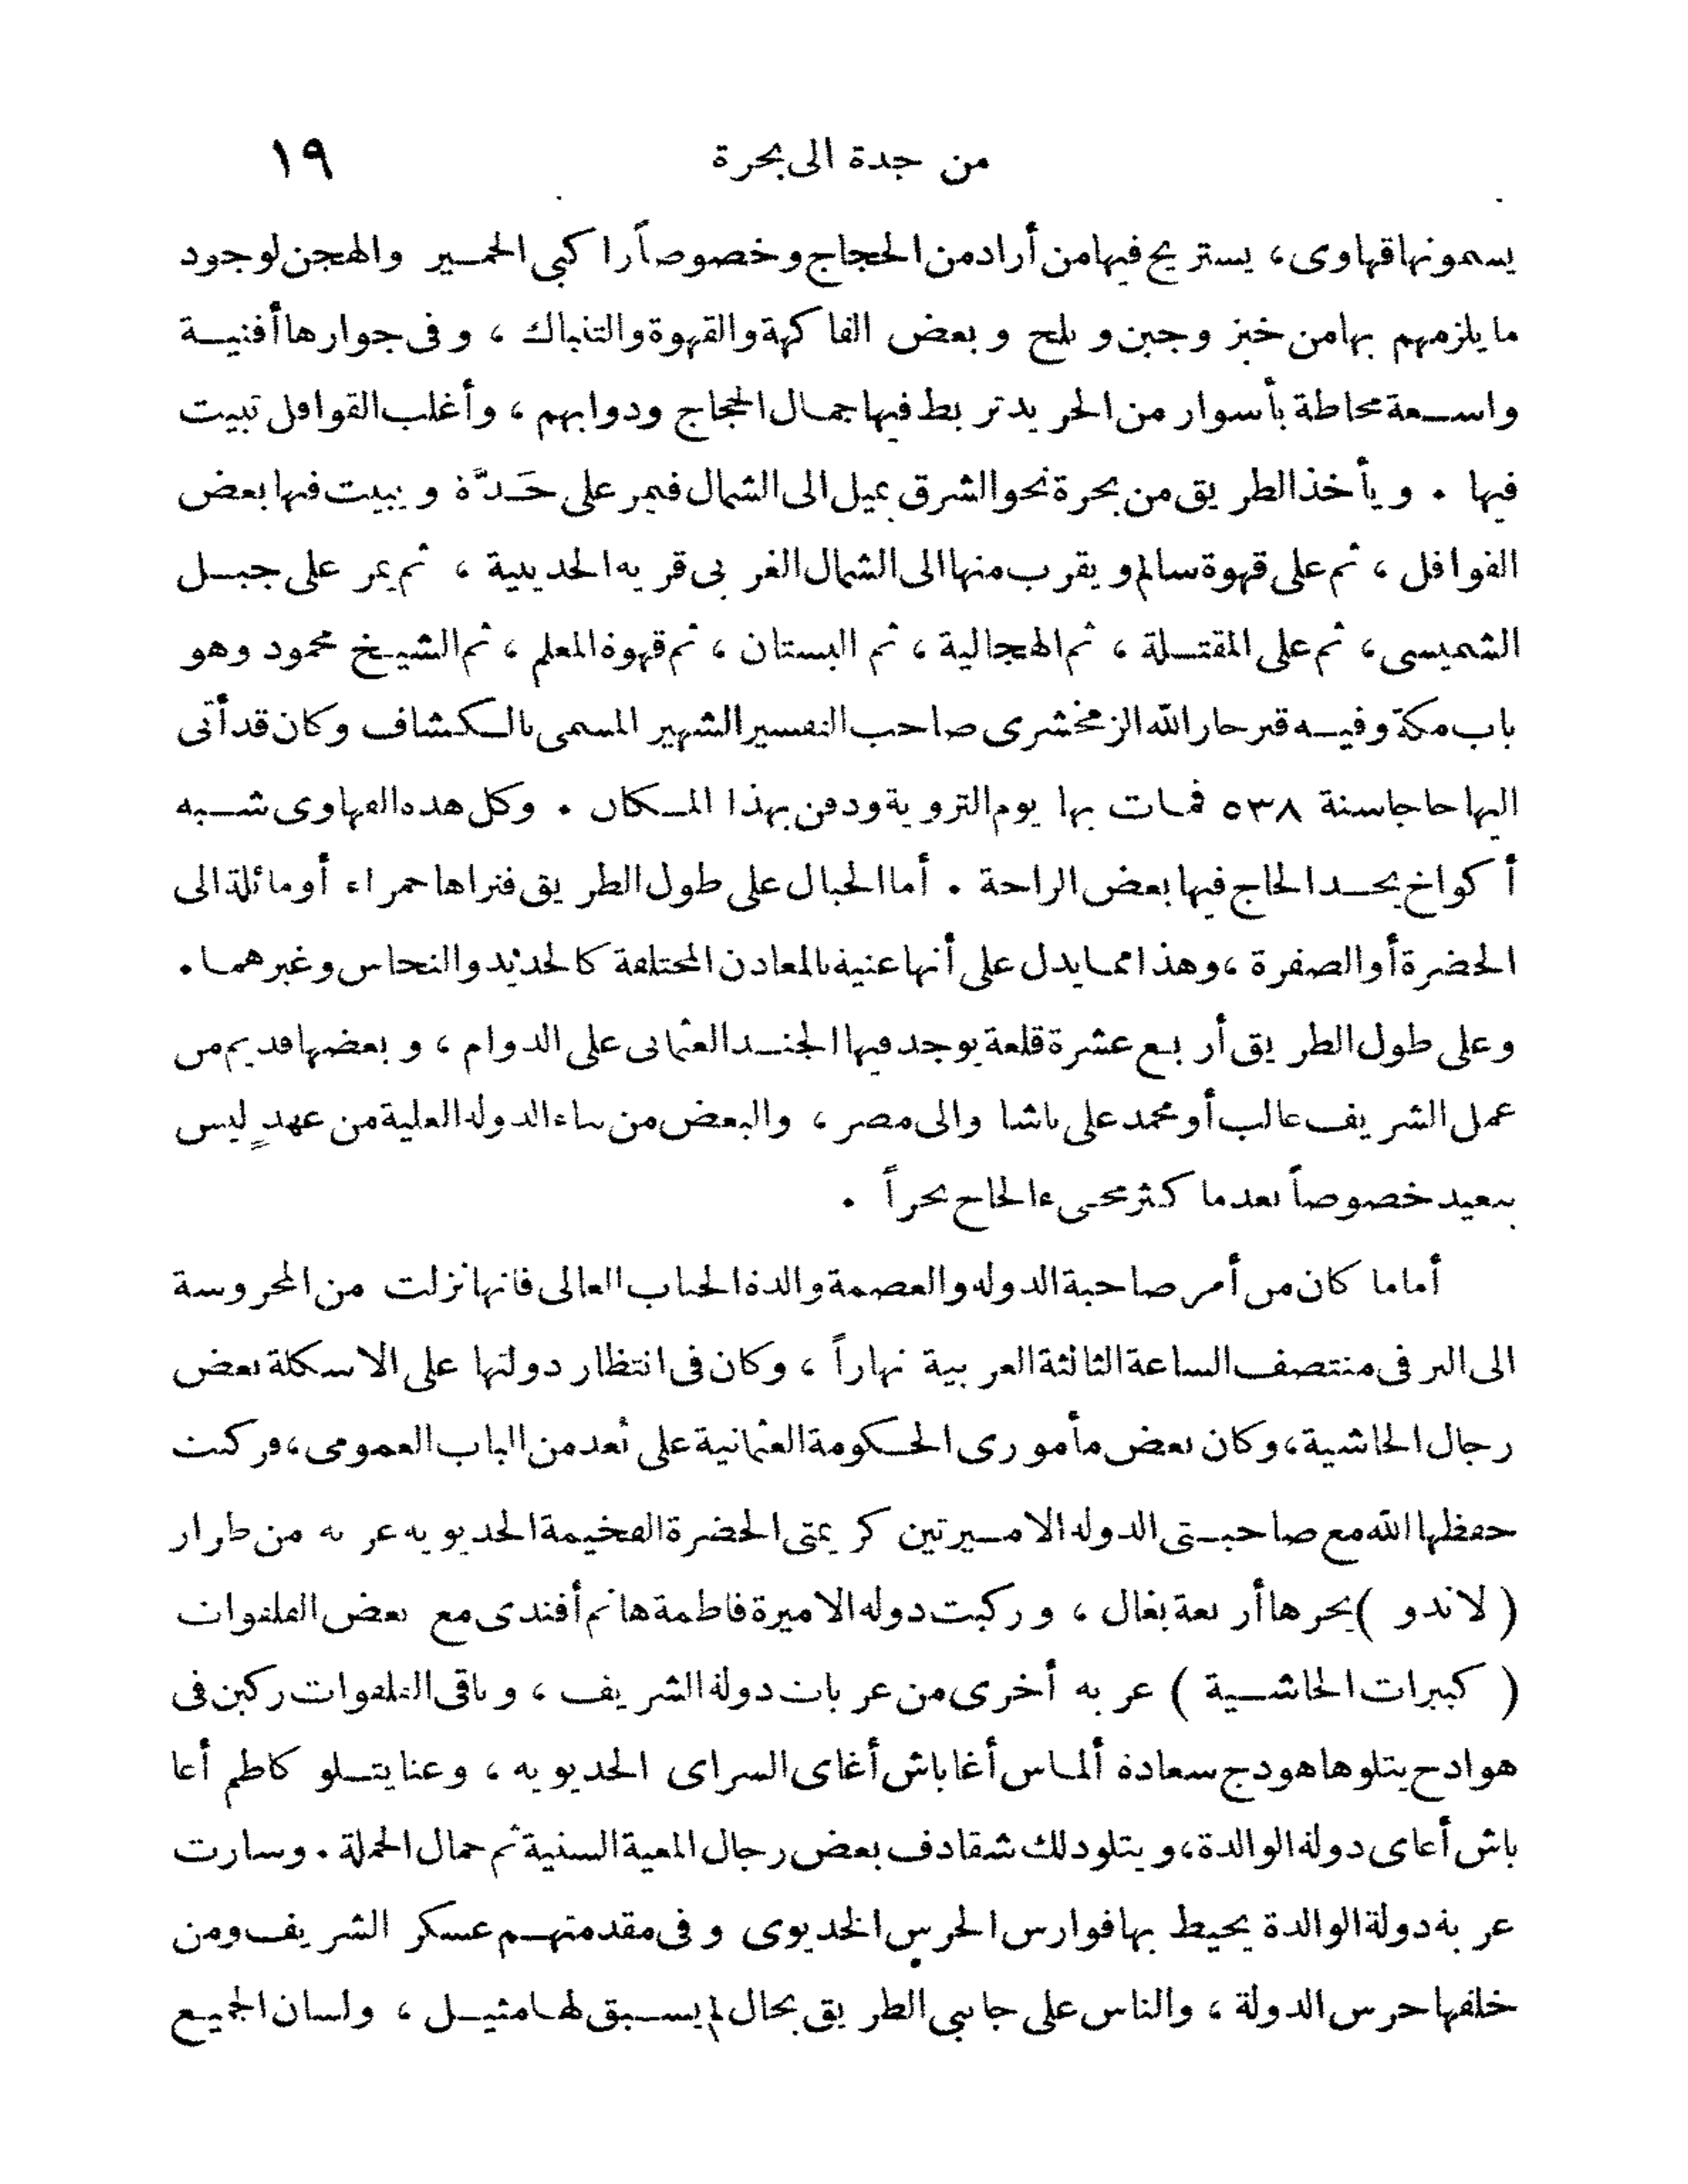 من جدة الى بحرة ١٩
يسمونها قهاوى ، يستريح فيها من أراد من الحجاج وخصوصاً راكبى الحمير والهجن لوجود
ما يلزمهم بها من خبز وجبن و بلح و بعض الفاكهة والقهوة والتنباك ، وفى جوارها أفنية
واسعة محاطة بأسوار من الحريد تربط فيها جمال الحجاج ودوابهم ، وأغلب القوافل تبيت
فيها . ويأخذ الطريق من بحرة نحو الشرق بميل الى الشمال فيمر على حَدَّة ويبيت فيها بعض
القوافل ، ثم على قهوة سالم ويقرب منها الى الشمال الغربى قرية الحديبية ، ثم يمر على جبل
الشميسى ، ثم على المقتلة ، ثم الهجالية ، ثم البستان ، ثم قهوة المعلم ، ثم الشيخ محمود وهو
باب مكة وفيه قبر جار الله الزمخشرى صاحب التفسير الشهير المسمى بالكشاف وكان قد أتى
اليها حاجا سنة ٥٣٨ فمات بها يوم التروية ودفن بهذا المكان . وكل هذه القهاوى شبه
أكواخ يجد الحاج فيها بعض الراحة . أما الجبال على طول الطريق فتراها حمراء أو مائلة الى
الخضرة أو الصفرة ، وهذا مما يدل على أنها غنية بالمعادن المختلفة كالحديد والنحاس وغيرهما .
وعلى طول الطريق أربع عشرة قلعة يوجد فيها الجند العثمانى على الدوام ، و بعضها قديم من
عمل الشريف غالب أو محمد على باشا والى مصر ، والبعض من بناء الدولة العلية من عهدٍ ليس
ببعيد خصوصاً بعد ما كثر مجىء الحاج بحراً .
أما ما كان من أمر صاحبة الدولة والعصمة والدة الجناب العالى فانها نزلت من المحروسة
الى البر فى منتصف الساعة الثالثة العربية نهاراً ، وكان فى انتظار دولتها على الاسكلة بعض
رجال الحاشية ، وكان بعض مأمورى الحكومة العثمانية على بُعد من الباب العمومى ، فركبت
حفظها الله مع صاحبتى الدولة الاميرتين كريمتى الحضرة الفخيمة الخديوية عربة من طراز
( لاندو ) يجرها أربعة بغال ، وركبت دولة الاميرة فاطمة هانم أفندى مع بعض القلفوات
( كبيرات الحاشية ) عربة أخرى من عربات دولة الشريف ، وباقى القلفوات ركبن فى
هوادج يتلوها هودج سعادة ألماس أغا باش أغاى السراى الخديوية ، وعنايتلو كاظم أغا
باش أغاى دولة الوالدة ، ويتلو ذلك شقادف بعض رجال المعية السنية ثم جمال الحملة . وسارت
عربة دولة الوالدة يحيط بها فوارس الحرس الخديوى وفى مقدمتهم عسكر الشريف ومن
خلفها حرس الدولة ، والناس على جانبى الطريق بحال لم يسبق لها مثيل ، ولسان الجميع